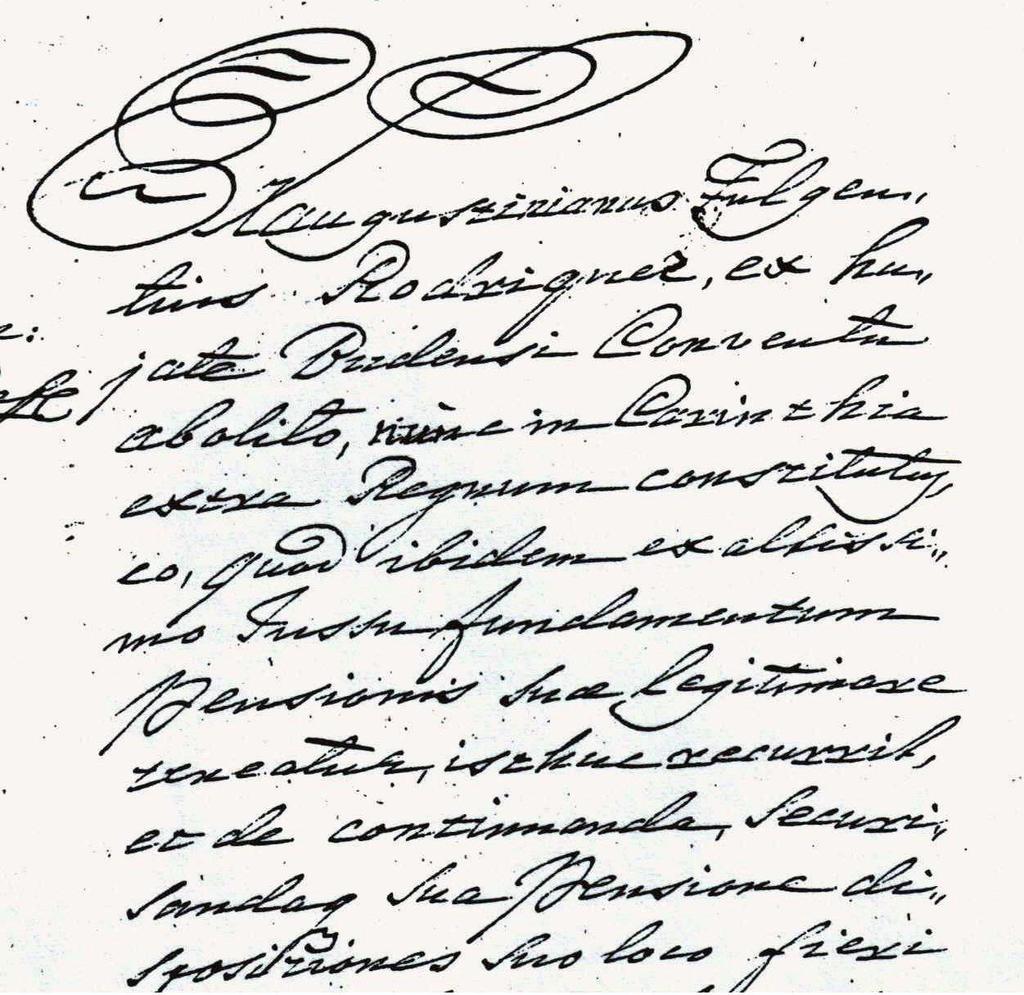 Exaugustinianus Fulgen„
tius Rodriguez, ex hu„
jate Budensi Conventu
abolito, nunc in Carinthia
extra Regnum constitutus,
eo, quod ibidem ex altissi„
mo Jussu fundamentum
Pensionis suae legitimare
teneatur, isthuc recurrit,
et de continuanda, Securi„
sandaq sua Pensione di„
spositiones suo loco fieri